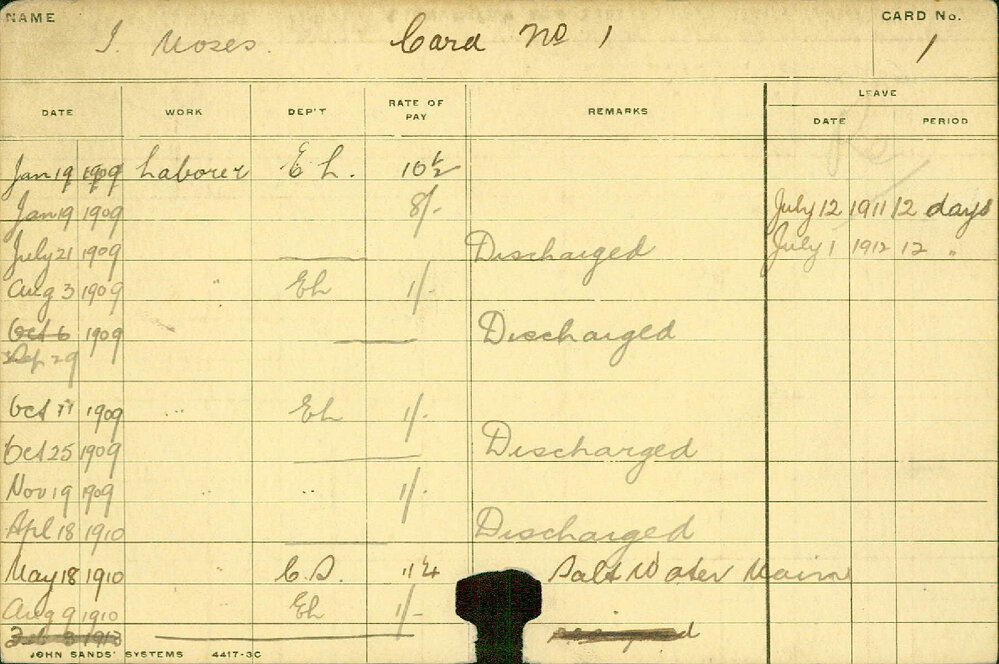 NAME
CARD No.
J. Moses. Card No 1
1
DATE WORK DEP'T RATE OF PAY REMARKS LEAVE
DATE PERIOD
Jan 19 1909 Laborer E L. 10½
Jan 19 1909 8/- July 12 1911 12 days
July 21 1909 Discharged July 1 1912 12 "
Aug 3 1909 " EL 1/-
Oct 6 1909 Discharged
Sep 29
Oct 11 1909 " EL 1/-
Oct 25 1909 Discharged
Nov 19 1909 " " 1/-
Apl 18 1910 Discharged
May 18 1910 C.S. 11¼ Salt Water Mains
Aug 9 1910 EL 1/-
Feb 8 1913
JOHN SANDS' SYSTEMS 4417-3C